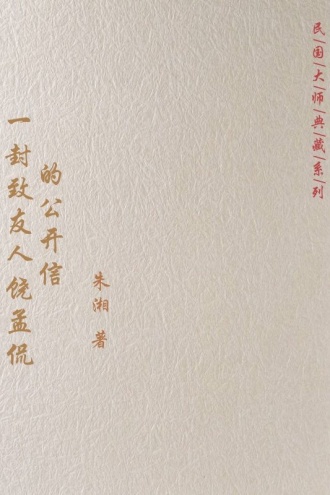 民国大师典藏系列
一封致友人饶孟侃
的公开信
朱湘 著